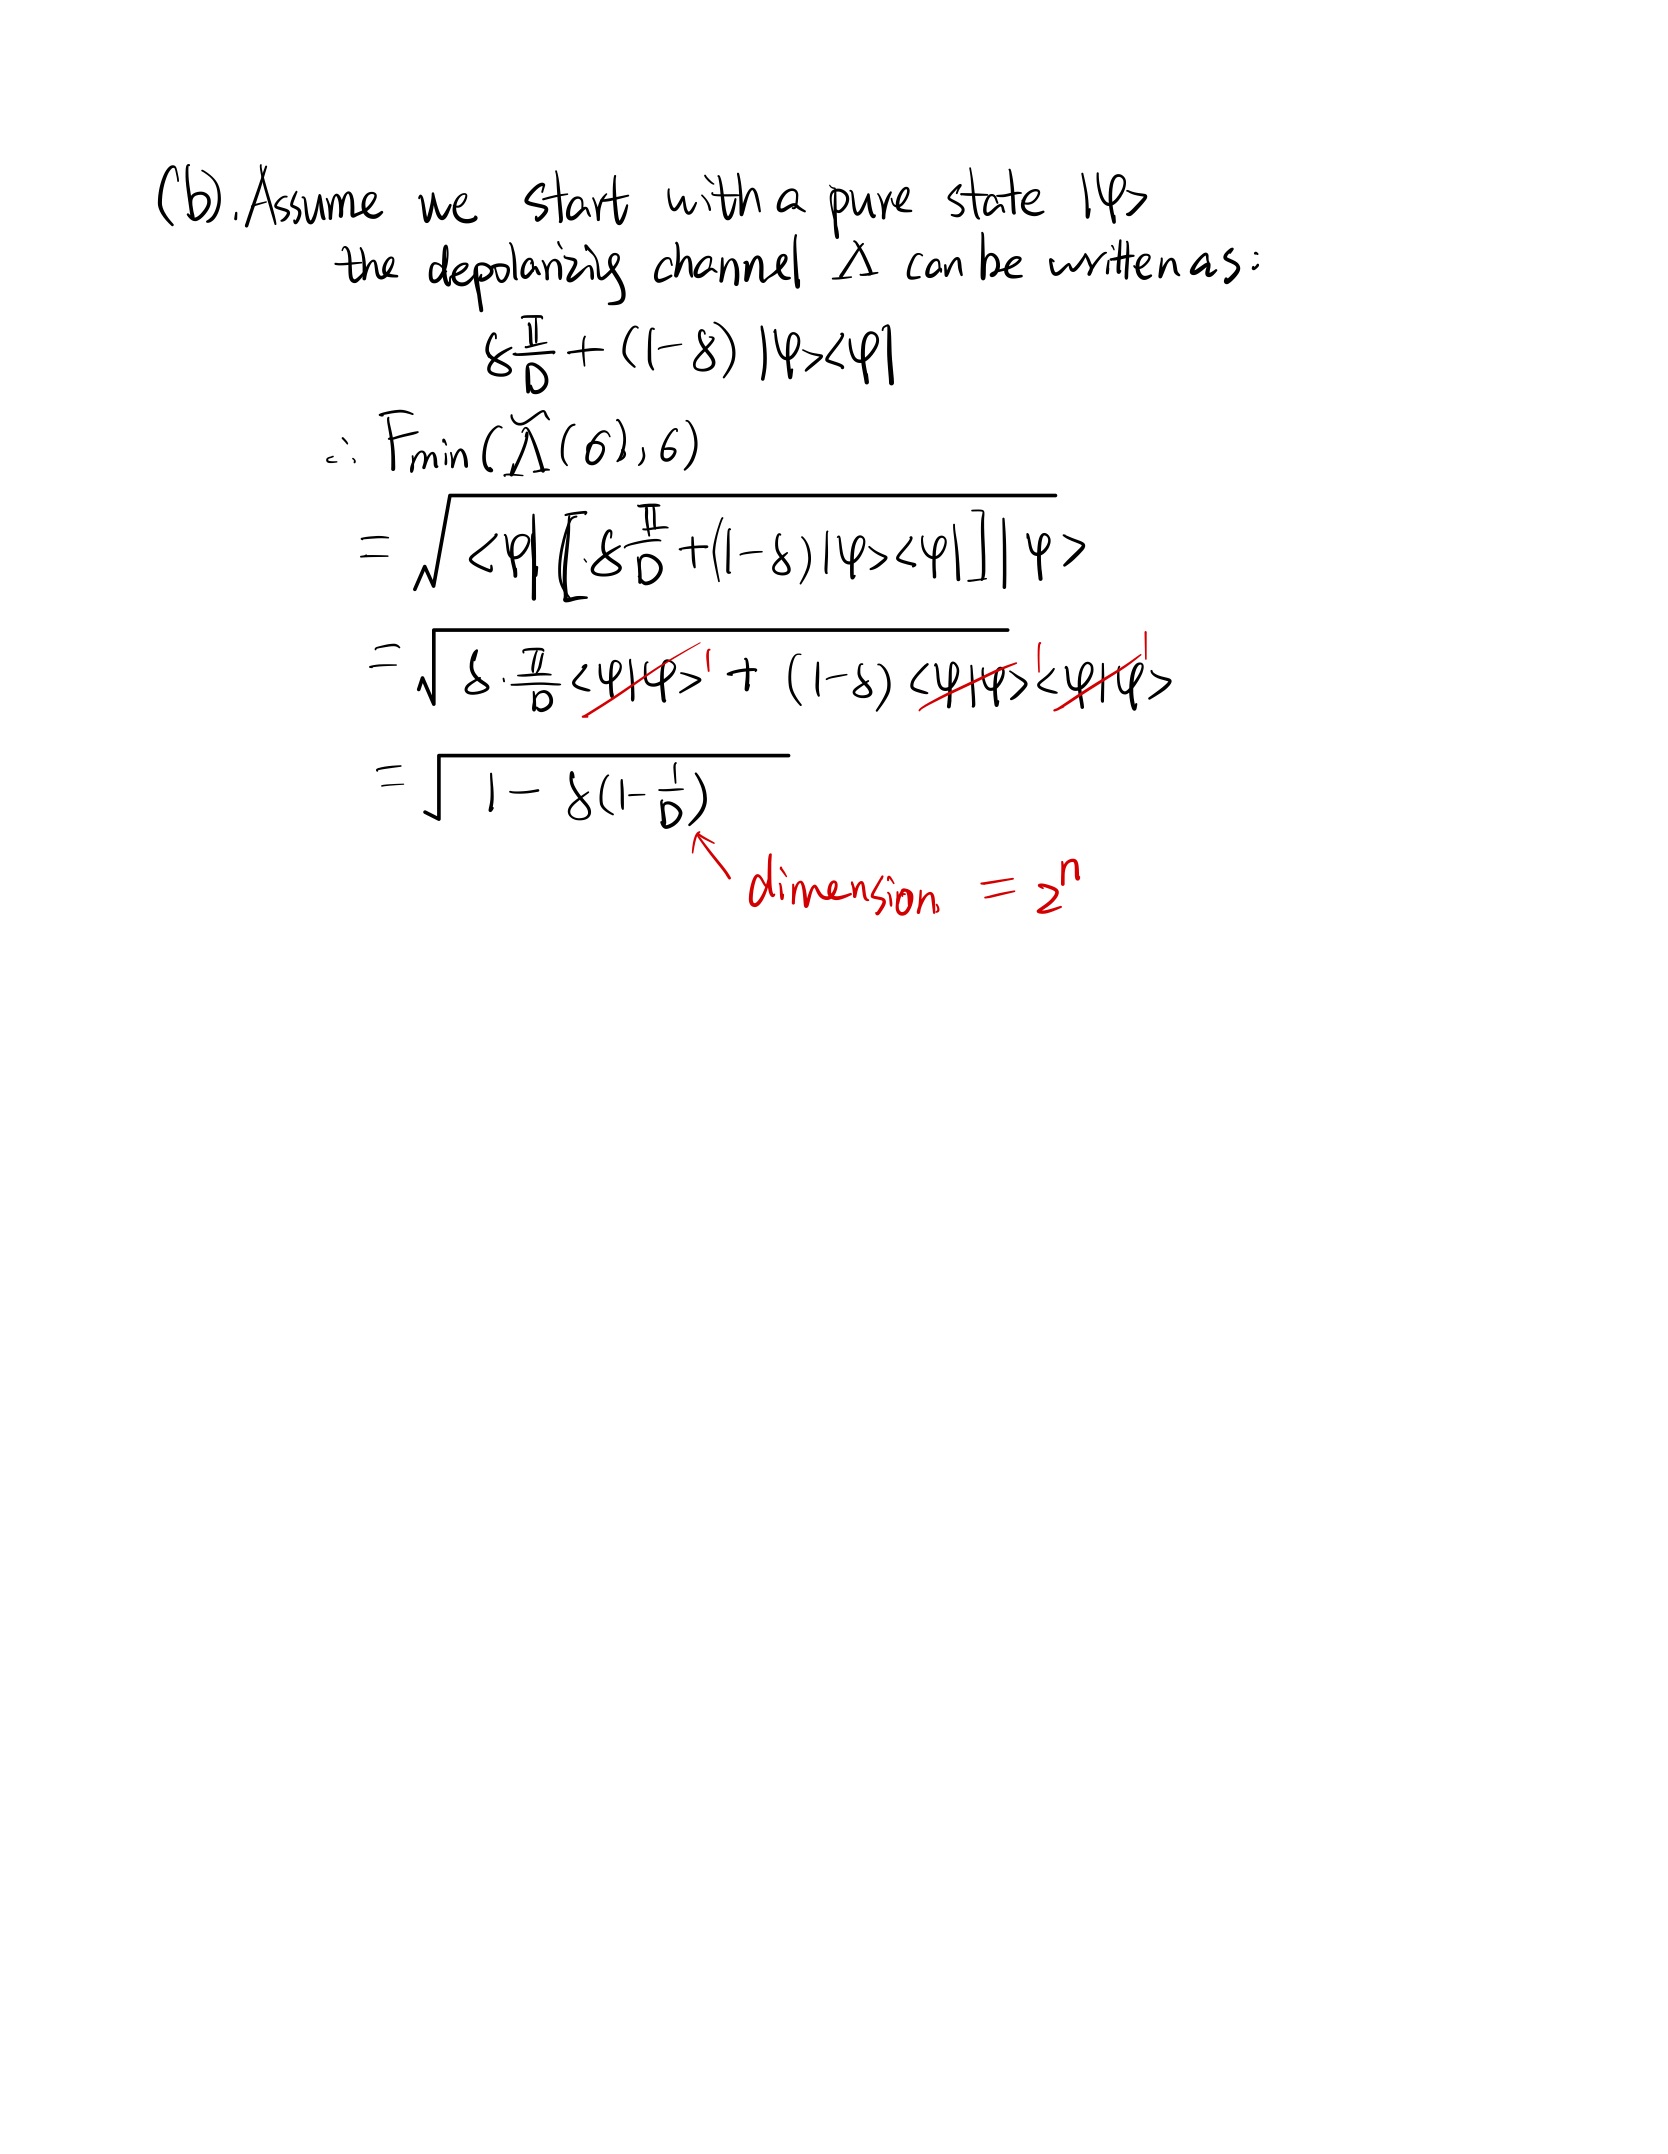 (b). Assume we start with a pure state |φ>
the depolarizing channel Λ can be written as:
δ 𝕀/D + (1-δ) |φ><φ|
∴ Fmin(Λ̃(σ), σ)
= √(<φ| [δ 𝕀/D + (1-δ)|φ><φ|] |φ>)
= √(δ · 𝕀/D <φ|φ> 1 + (1-δ) <φ|φ> 1 <φ|φ> 1)
= √(1 - δ(1 - 1/D))
dimension = 2ⁿ